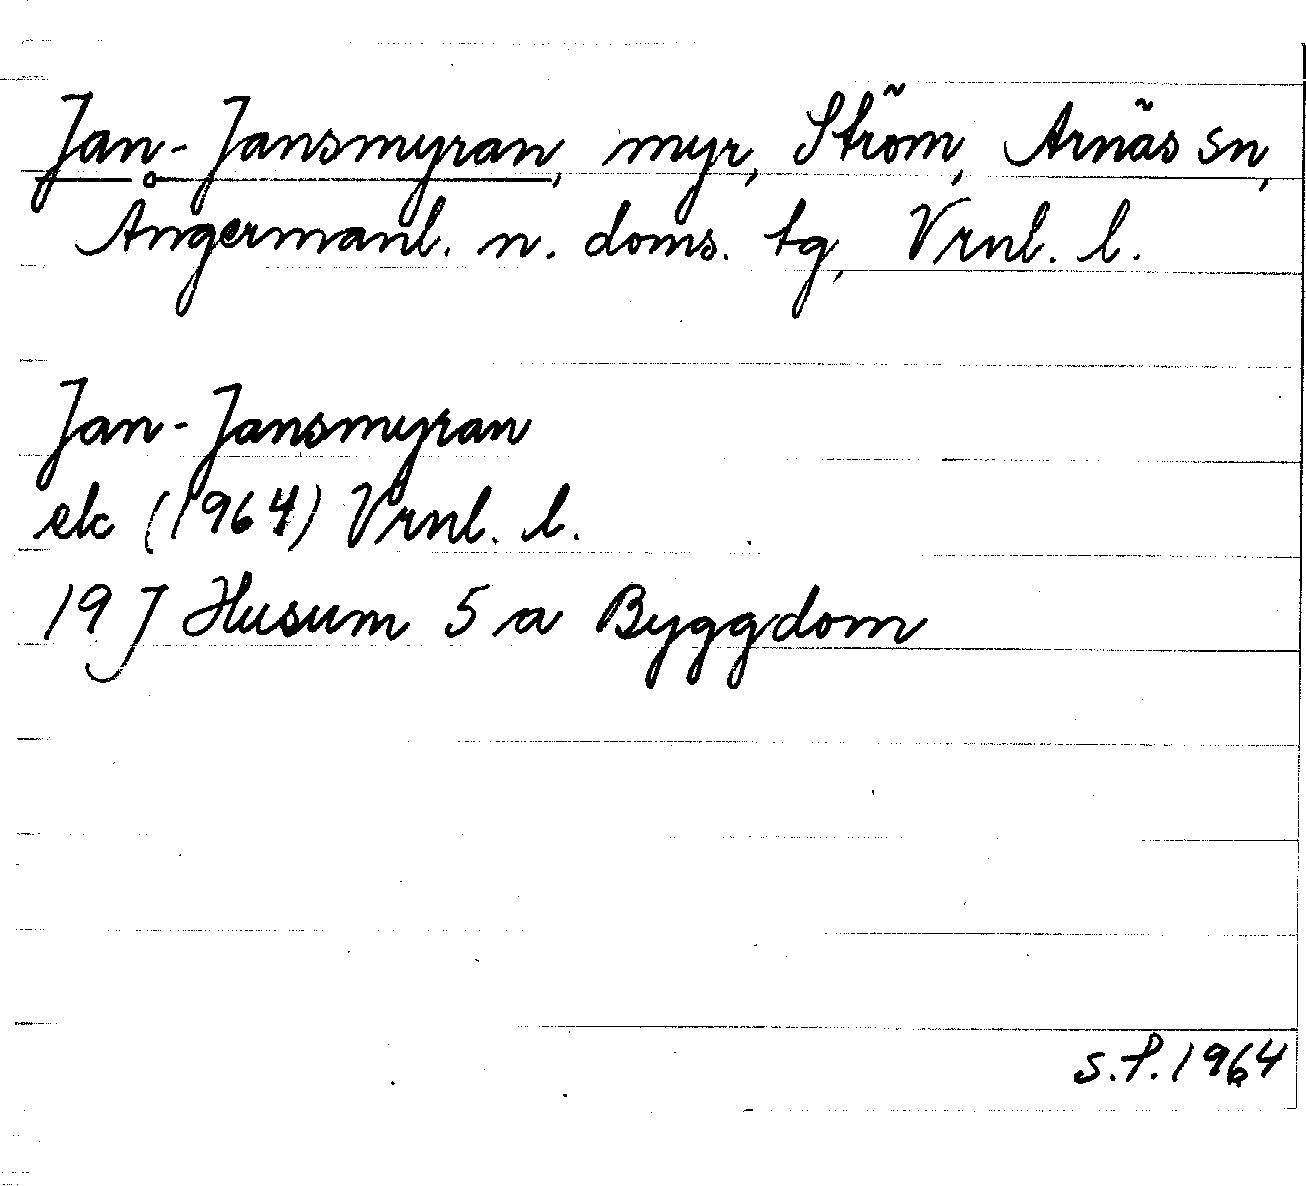 Jan-Jansmyran, myr, Ström, Arnäs sn,
Ångermanl. n. doms. tg, Vrnl. l.
Jan-Jansmyran
ek (1964) Vrnl. l.
19 J Husum 5 a Byggdom
S.P. 1964